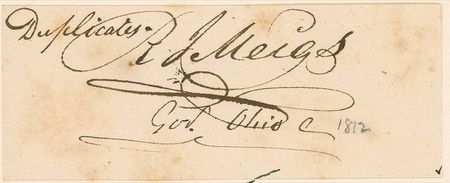 Duplicates.
R J Meigs
Gov. Ohio
1812